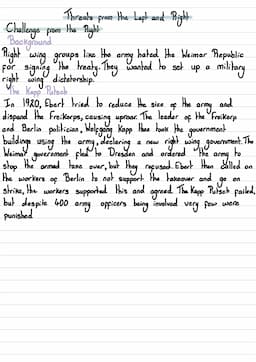 Threats from the Left and Right
Challenge from the Right
Background
Right wing groups like the army hated the Weimar Republic
for signing the treaty. They wanted to set up a military
right wing dictatorship.
The Kapp Putsch
In 1920, Ebert tried to reduce the size of the army and
dispand the Freikorps, causing uproar. The leader of the Freikorp
and Berlin politician, Wolfgang Kapp then took the government
buildings using the army, declaring a new right wing government. The
Weimar government fled to Dresden and ordered the army to
stop the armed take over, but they refused. Ebert then called on
the workers of Berlin to not support the takeover and go on
strike, the workers supported this and agreed. The Kapp Putsch failed,
but despite 400 army officers being involved very few were
punished